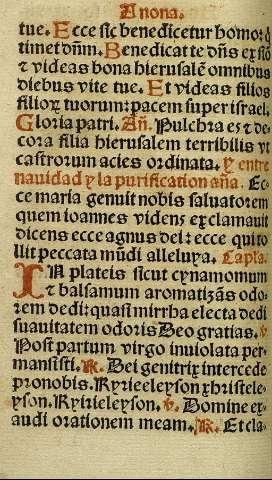 A nona.
tue. Ecce sic benedicetur homo: q̃
timet dñm. Benedicat te dñs ex siõ
⁊ videas bona hierusalẽ omnibus
diebus vite tue. Et videas filios
filioꝝ tuorum: pacem super israel.
Gloria patri. Añ. Pulchra es ⁊ de
cora filia hierusalem terribilis vt
castrorum acies ordinata. Y entre
nauidad y la purification aña. Ec
ce maria genuit nobis saluatorem
quem ioannes videns exclamauit
dicens ecce agnus dei: ecce qui to
llit peccata mũdi alleluya. Capla.
IN plateis sicut cynamomum
⁊ balsamum aromatizãs odo
rem dedi: quasi mirrha electa dedi
suauitatem odoris Deo gratias. ℣.
Post partum virgo inuiolata per
mansisti. ℟. Dei genitrix intercede
pro nobis. Kyrieeleyson xpĩstele-
yson. Kyrieleyson. ℣. Domine ex
audi orationem meam. ℟. Et cla-